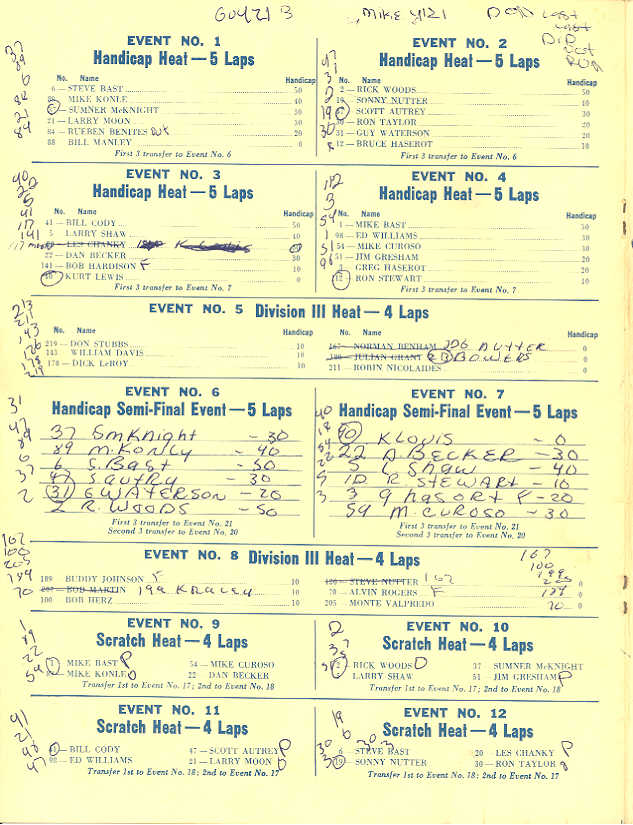 GUY 21 3 MIKE 4121 DON LAST
DID
RUN
EVENT NO. 1
Handicap Heat — 5 Laps
No. Name Handicap
6—STEVE BAST 50
MIKE KONLE 40
SUMNER McKNIGHT 30
21—LARRY MOON 20
84—RUEBEN BENITES 20
88 BILL MANLEY 0
First 3 transfer to Event No. 6
37
89
6
88
21
84
EVENT NO. 2
Handicap Heat — 5 Laps
No. Name Handicap
2—RICK WOODS 50
19 SONNY NUTTER 10
SCOTT AUTREY 30
30—RON TAYLOR 20
31—GUY WATERSON 20
12—BRUCE HASEROT 10
First 3 transfer to Event No. 6
47
31
2
19
30
EVENT NO. 3
Handicap Heat — 5 Laps
No. Name Handicap
41—BILL CODY 50
5 LARRY SHAW 40
LES CHANKY
22—DAN BECKER 30
141—BOB HARDISON F 10
40 KURT LEWIS 0
First 3 transfer to Event No. 7
40
22
5
41
117
141
EVENT NO. 4
Handicap Heat — 5 Laps
No. Name Handicap
1—MIKE BAST 50
98—ED WILLIAMS 50
54—MIKE CUROSO 30
51—JIM GRESHAM 20
GREG HASEROT 20
12—RON STEWART 10
First 3 transfer to Event No. 7
112
3
54
1
51
98
EVENT NO. 5 Division III Heat — 4 Laps
No. Name Handicap No. Name Handicap
219—DON STUBBS 10
143 WILLIAM DAVIS 10
178—DICK LeROY 10
167—NORMAN BENHAM 126 NUTTER 0
JULIAN GRANT BOWERS 0
211—ROBIN NICOLAIDES 0
213
211
143
126
178
219
EVENT NO. 6
Handicap Semi-Final Event — 5 Laps
37 SMKnight – 30
89 M. KONLY – 40
6 S. BAST – 50
47 SAUTRY – 30
31 G WATERSON – 20
2 R. WOODS – 50
First 3 transfer to Event No. 21
Second 3 transfer to Event No. 20
31
47
89
6
37
2
EVENT NO. 7
Handicap Semi-Final Event — 5 Laps
40 K LOUIS – 0
22 D. BECKER – 30
5 L SHAW – 40
12 R. STEWART – 10
3 G HASORT F – 20
54 M. CUROSO – 30
First 3 transfer to Event No. 21
Second 3 transfer to Event No. 20
40
12
54
22
5
3
EVENT NO. 8 Division III Heat — 4 Laps
189 BUDDY JOHNSON F 10
207—BOB MARTIN 199 KRACEY
100 BOB HERZ 10
126—STEVE NUTTER 167 0
70—ALVIN ROGERS F 0
205 MONTE VALPREDO 0
167
100
205
189
70
167
100
199
205
189
70
EVENT NO. 9
Scratch Heat — 4 Laps
1 MIKE BAST P 54—MIKE CUROSO
MIKE KONLE D 22 DAN BECKER
Transfer 1st to Event No. 17; 2nd to Event No. 18
1
89
22
54
EVENT NO. 10
Scratch Heat — 4 Laps
2 RICK WOODS D 37 SUMNER McKNIGHT
LARRY SHAW 51 JIM GRESHAM P
Transfer 1st to Event No. 17; 2nd to Event No. 18
2
37
5
EVENT NO. 11
Scratch Heat — 4 Laps
41—BILL CODY 47—SCOTT AUTREY P
98—ED WILLIAMS 21—LARRY MOON D
Transfer 1st to Event No. 18; 2nd to Event No. 17
41
21
98
47
EVENT NO. 12
Scratch Heat — 4 Laps
6 STEVE BAST 20 LES CHANKY P
19—SONNY NUTTER 30—RON TAYLOR
Transfer 1st to Event No. 18; 2nd to Event No. 17
19
6
30 20 3
30